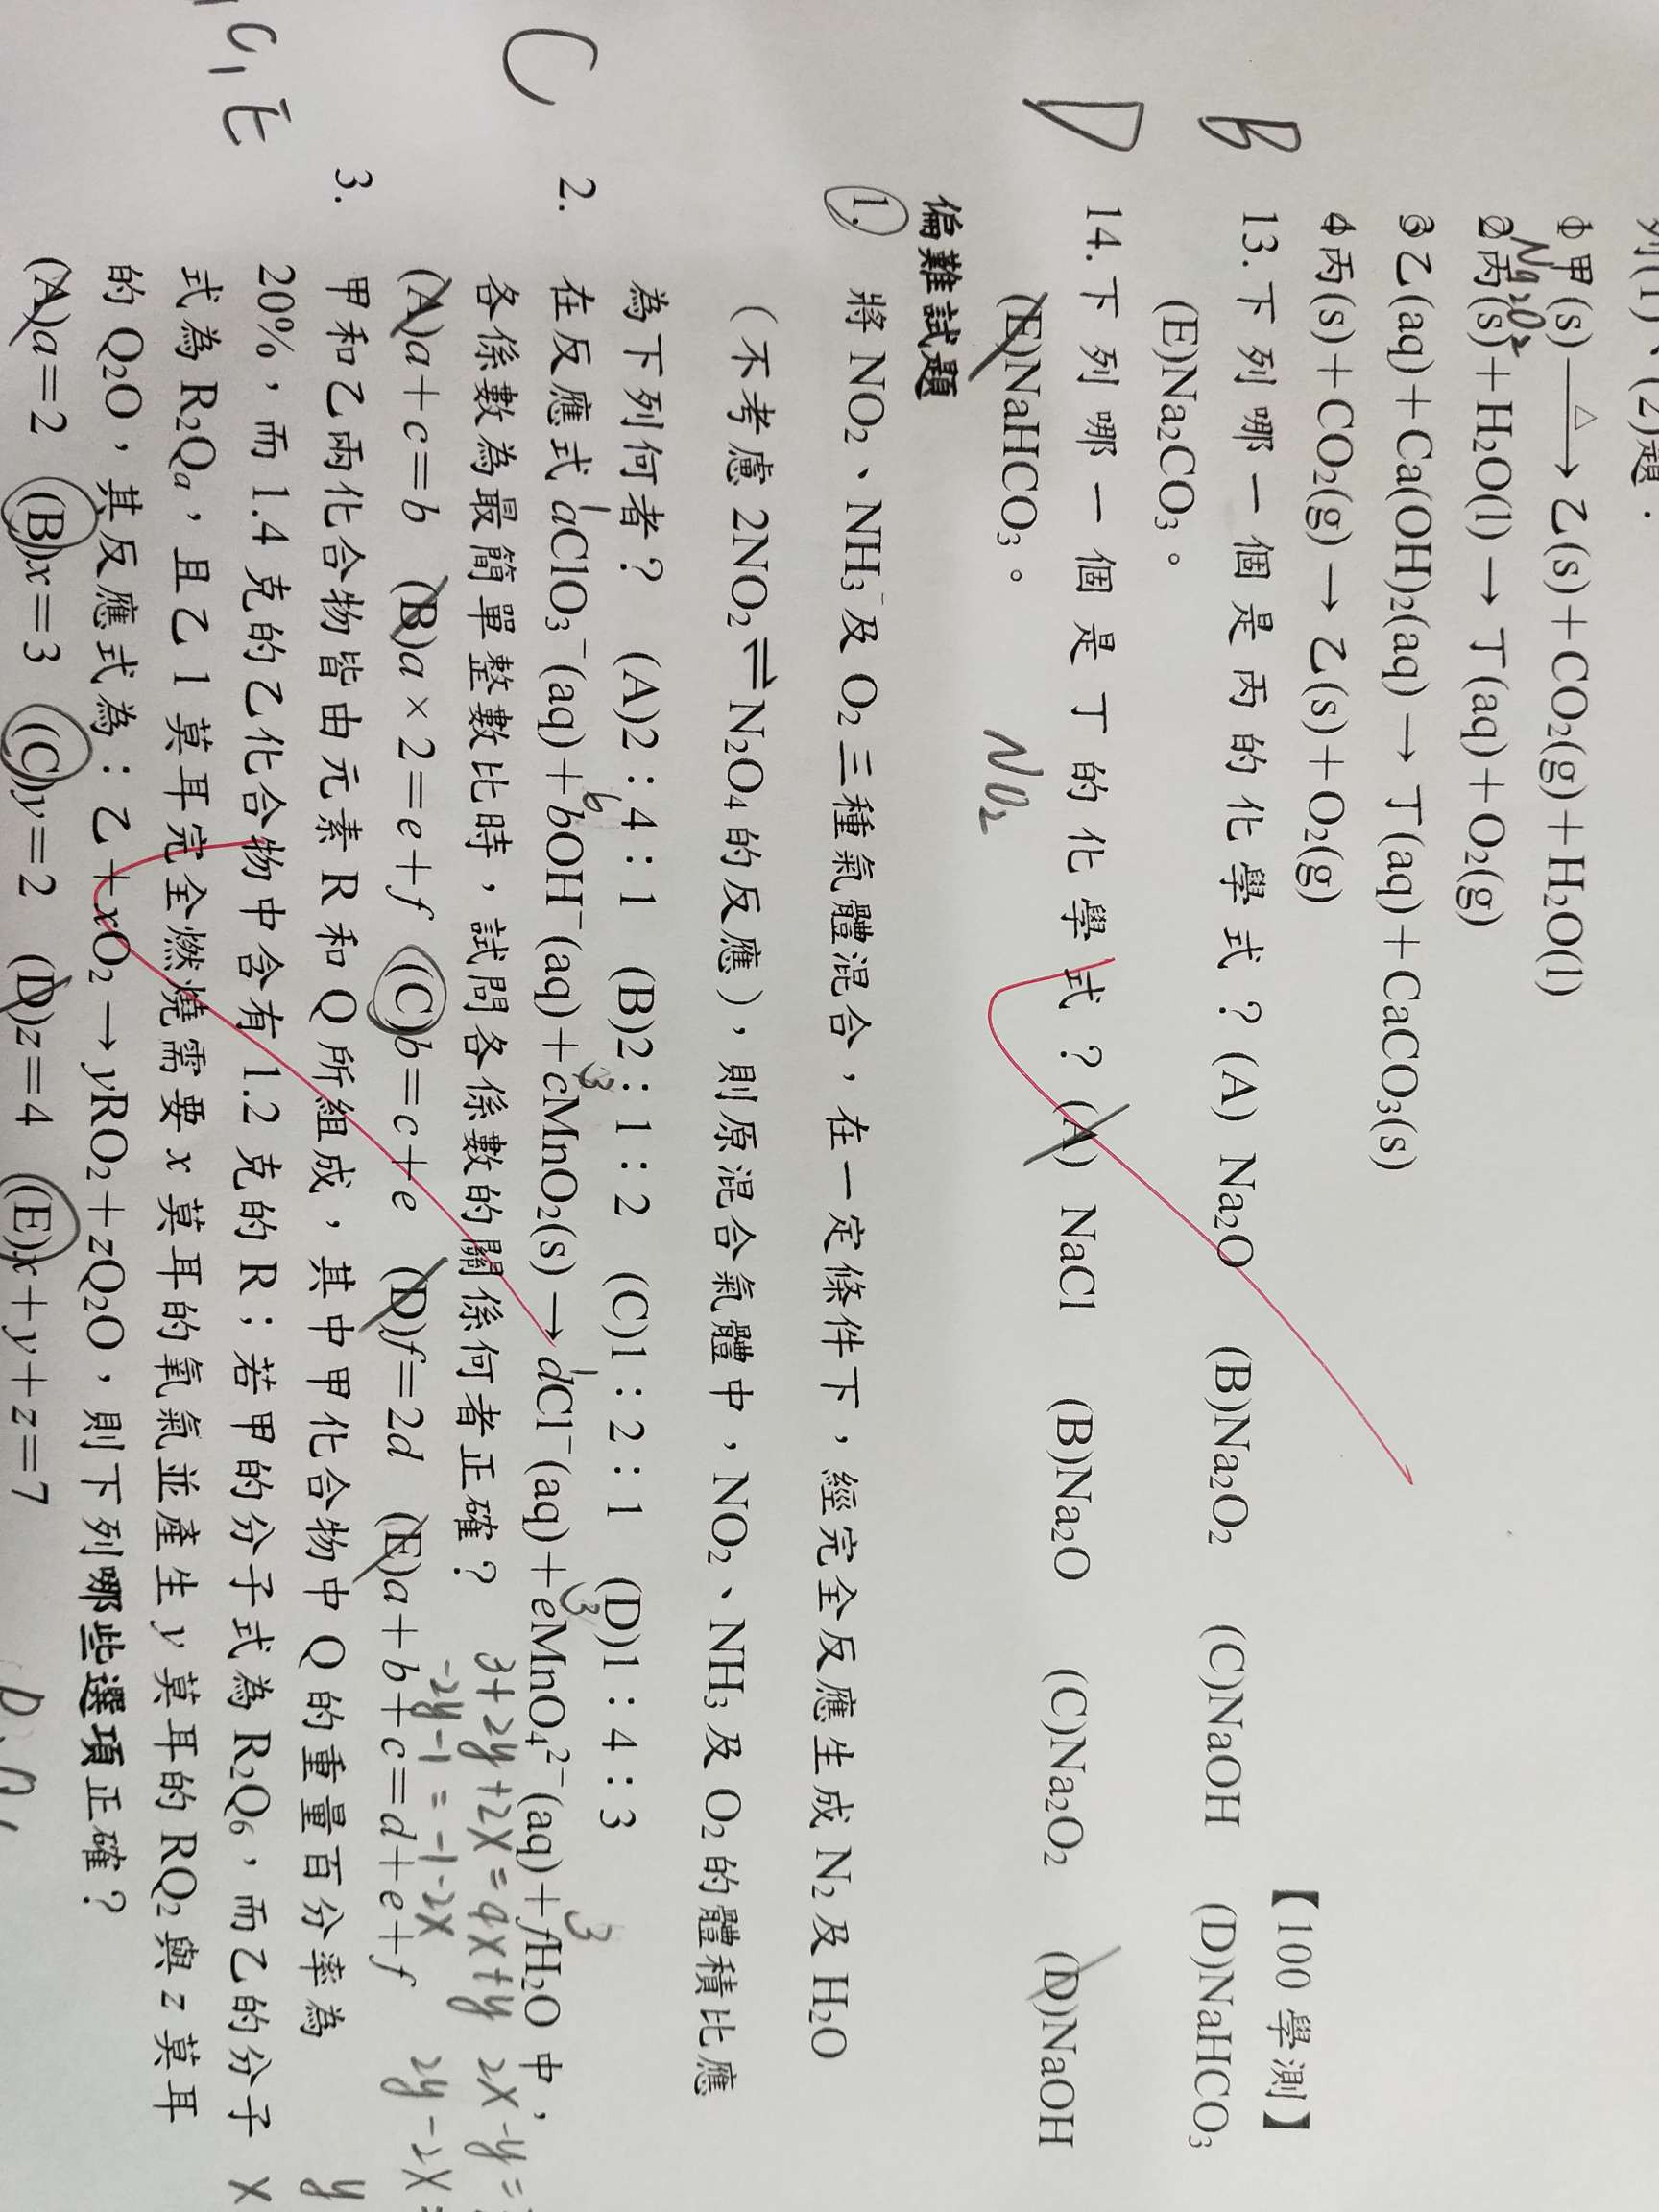 列(1)、(2)題：
1 甲(s) —△→ 乙(s)＋CO₂(g)＋H₂O(l)
Na₂O₂
2 丙(s)＋H₂O(l) → 丁(aq)＋O₂(g)
3 乙(aq)＋Ca(OH)₂(aq) → 丁(aq)＋CaCO₃(s)
4 丙(s)＋CO₂(g) → 乙(s)＋O₂(g)
【100 學測】
B 13.下列哪一個是丙的化學式？(A) Na₂O (B)Na₂O₂ (C)NaOH (D)NaHCO₃
(E)Na₂CO₃。
D 14.下列哪一個是丁的化學式？(A) NaCl (B)Na₂O (C)Na₂O₂ (D)NaOH
(E)NaHCO₃。
NO₂
偏難試題
1. 將 NO₂、NH₃ 及 O₂ 三種氣體混合，在一定條件下，經完全反應生成 N₂ 及 H₂O
（不考慮 2NO₂⇌N₂O₄ 的反應），則原混合氣體中，NO₂、NH₃ 及 O₂ 的體積比應
為下列何者？ (A)2：4：1 (B)2：1：2 (C)1：2：1 (D)1：4：3
1 6 3 1 3 3
C 2. 在反應式 aClO₃⁻(aq)＋bOH⁻(aq)＋cMnO₂(s)→dCl⁻(aq)＋eMnO₄²⁻(aq)＋fH₂O 中，
各係數為最簡單整數比時，試問各係數的關係何者正確？ 3+2y+2x=4x+y 2x-y=
(A)a＋c＝b (B)a×2＝e＋f (C)b＝c＋e (D)f＝2d (E)a＋b＋c＝d＋e＋f
-2y-1=-1-2x 2y-2x=
C, E 3. 甲和乙兩化合物皆由元素 R 和 Q 所組成，其中甲化合物中 Q 的重量百分率為 y
20%，而 1.4 克的乙化合物中含有 1.2 克的 R；若甲的分子式為 R₂Q₆，而乙的分子 x
式為 R₂Qₐ，且乙 1 莫耳完全燃燒需要 x 莫耳的氧氣並產生 y 莫耳的 RQ₂ 與 z 莫耳
的 Q₂O，其反應式為：乙＋xO₂→yRO₂＋zQ₂O，則下列哪些選項正確？
(A)a＝2 (B)x＝3 (C)y＝2 (D)z＝4 (E)x＋y＋z＝7